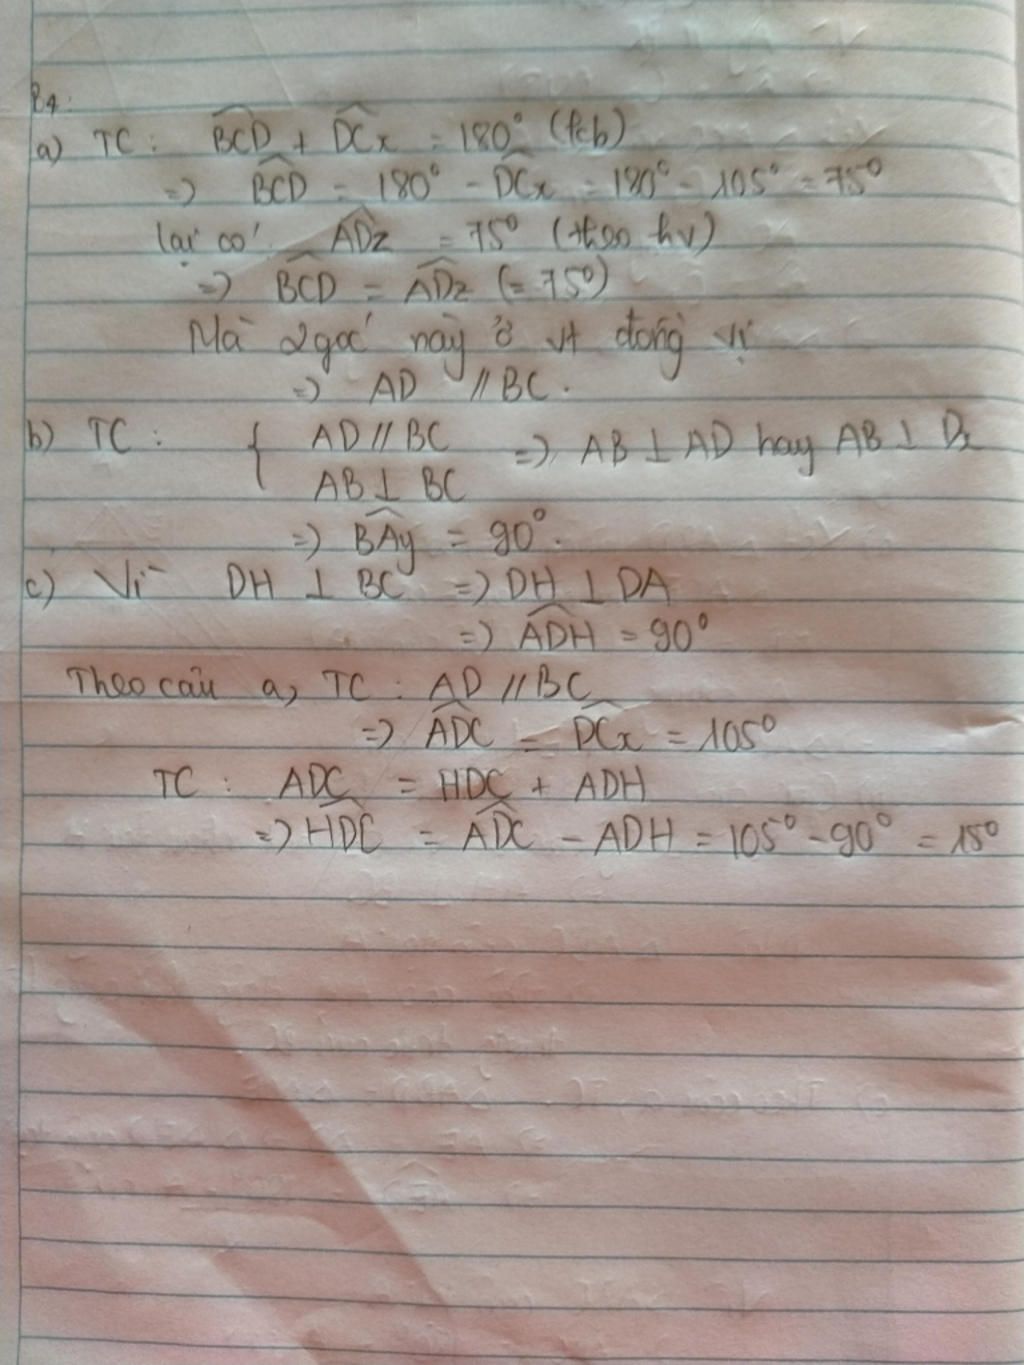 B4:
a) TC: BCD + DCx = 180° (kcb)
=> BCD = 180° - DCx = 180° - 105° = 75°
lại có: ADz = 75° (theo hv)
=> BCD = ADz (= 75°)
Mà 2 góc này ở vt đồng vị
=> AD // BC.
b) TC: { AD // BC => AB ⊥ AD hay AB ⊥ Dz
AB ⊥ BC
=> BAy = 90°.
c) Vì DH ⊥ BC => DH ⊥ DA
=> ADH = 90°
Theo câu a, TC: AD // BC
=> ADC = DCx = 105°
TC: ADC = HDC + ADH
=> HDC = ADC - ADH = 105° - 90° = 15°